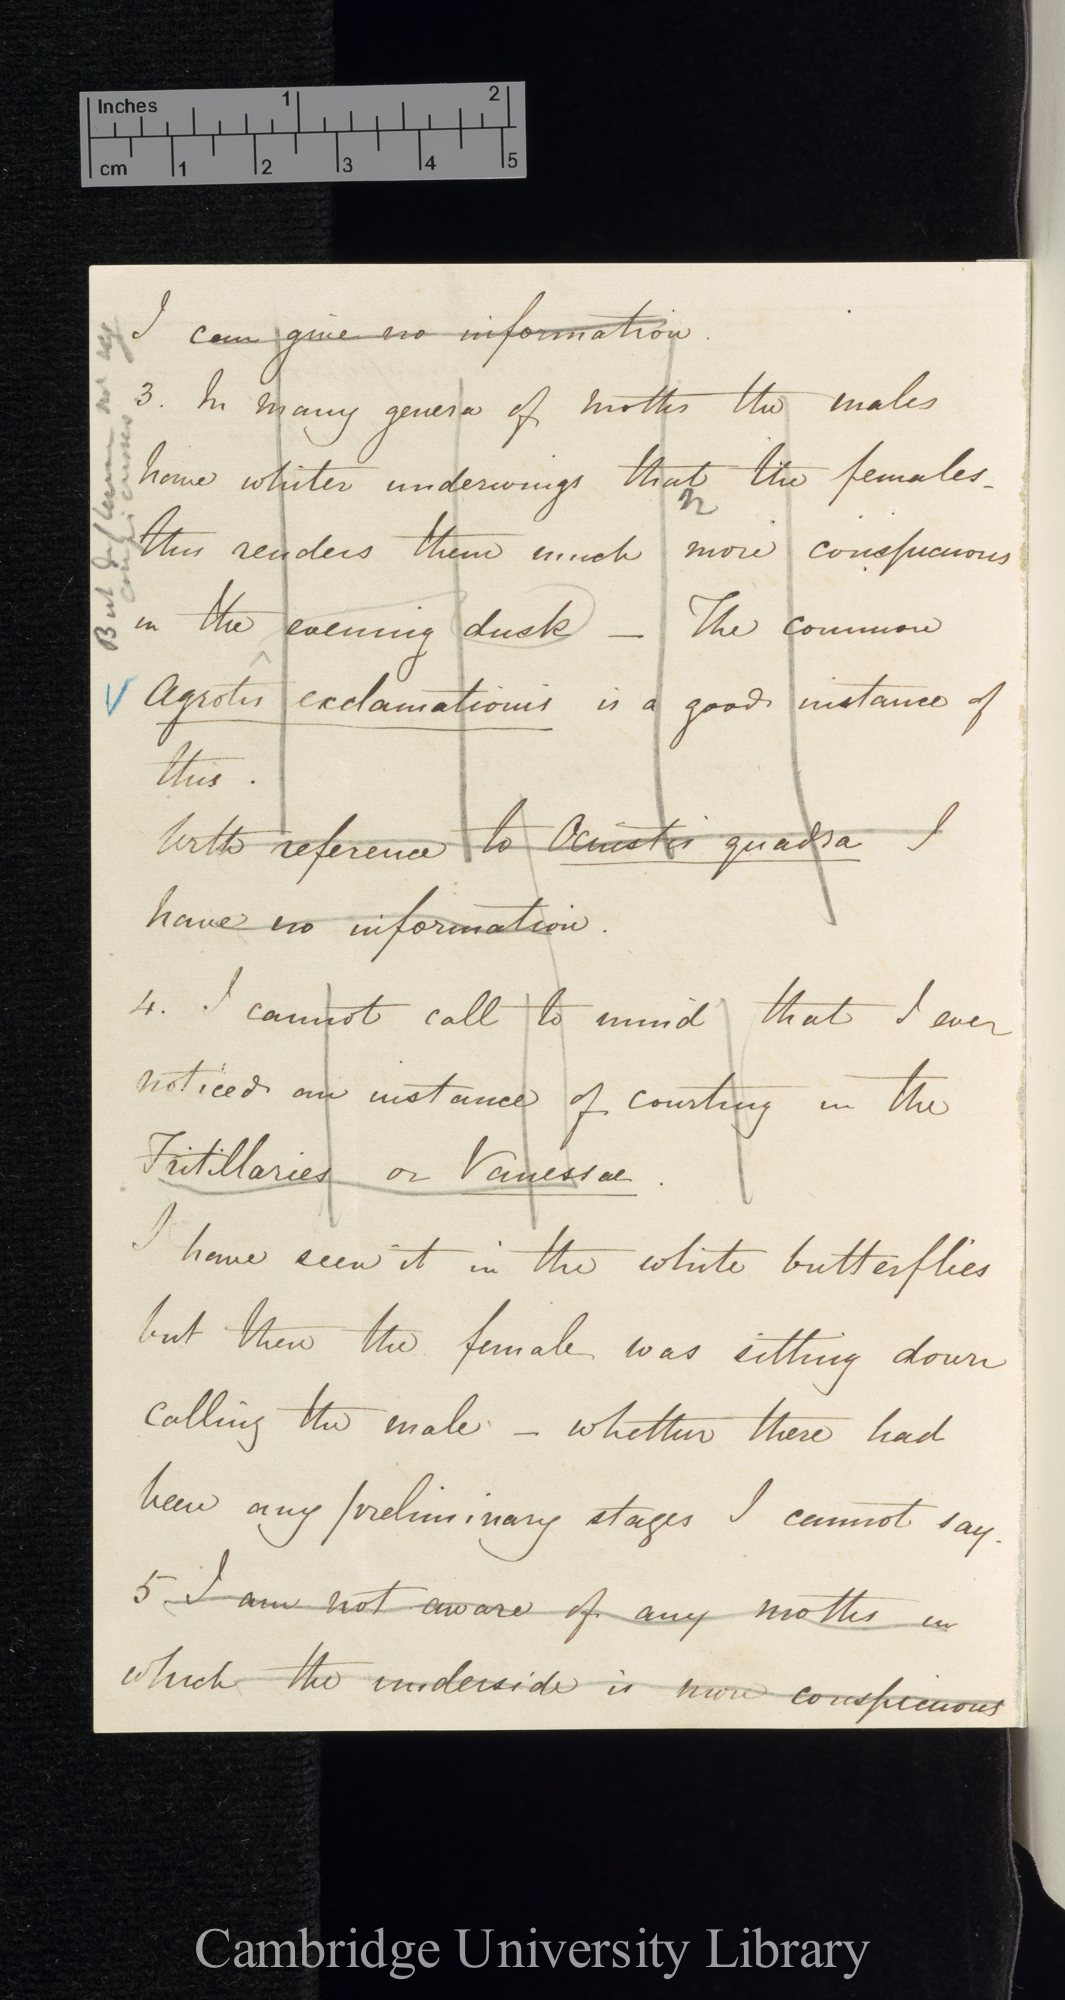 Inches 1 2
cm 1 2 3 4 5
I can give no information.
3. In many genera of moths the males
have whiter underwings that the females_
n
this renders them much more conspicuous
in the evening dusk — The common
Agrotis exclamationis is a good instance of
this.
With reference to Œnistis quadra I
have no information.
4. I cannot call to mind that I ever
noticed an instance of courting in the
Fritillaries or Vanessae.
I have seen it in the white butterflies
but then the female was sitting down
calling the male — whether there had
been any preliminary stages I cannot say.
5 I am not aware of any moths in
which the underside is more conspicuous
But
not
Cambridge University Library